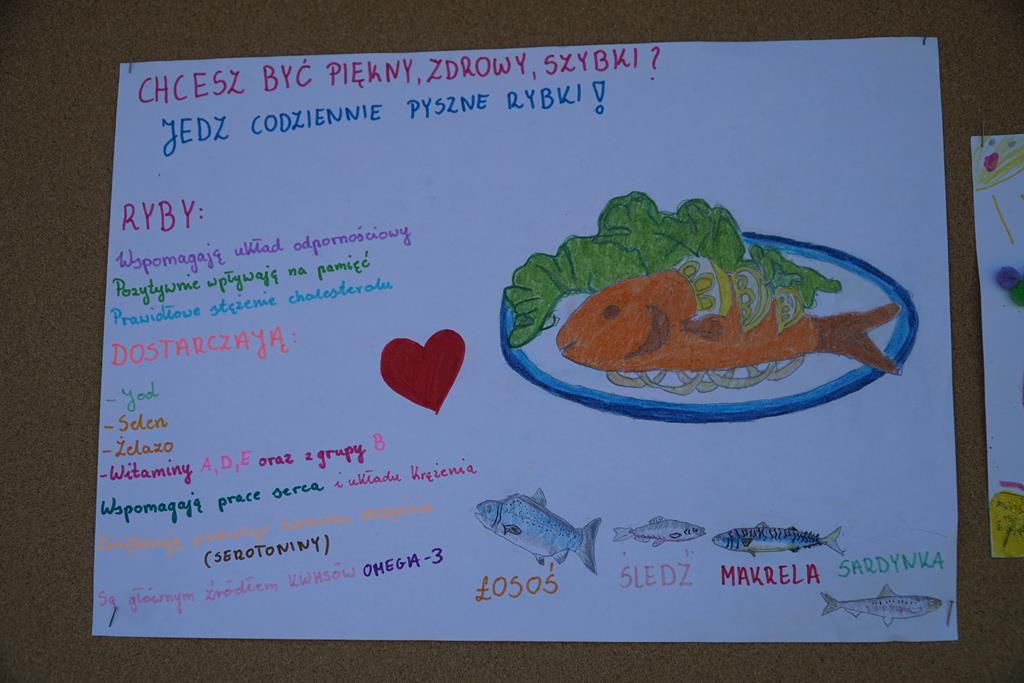 CHCESZ BYĆ PIĘKNY, ZDROWY, SZYBKI?
JEDZ CODZIENNIE PYSZNE RYBKI!
RYBY:
Wspomagają układ odpornościowy
Pozytywnie wpływają na pamięć
Prawidłowe stężenie cholesterolu
DOSTARCZAJĄ:
- Jod
- Selen
- Żelazo
- Witaminy A, D, E oraz z grupy B
Wspomagają prace serca i układu krążenia
Zwiększają produkcję hormonu szczęścia
(SEROTONINY)
Są głównym źródłem KWASÓW OMEGA-3
ŁOSOŚ
ŚLEDŹ
MAKRELA
SARDYNKA